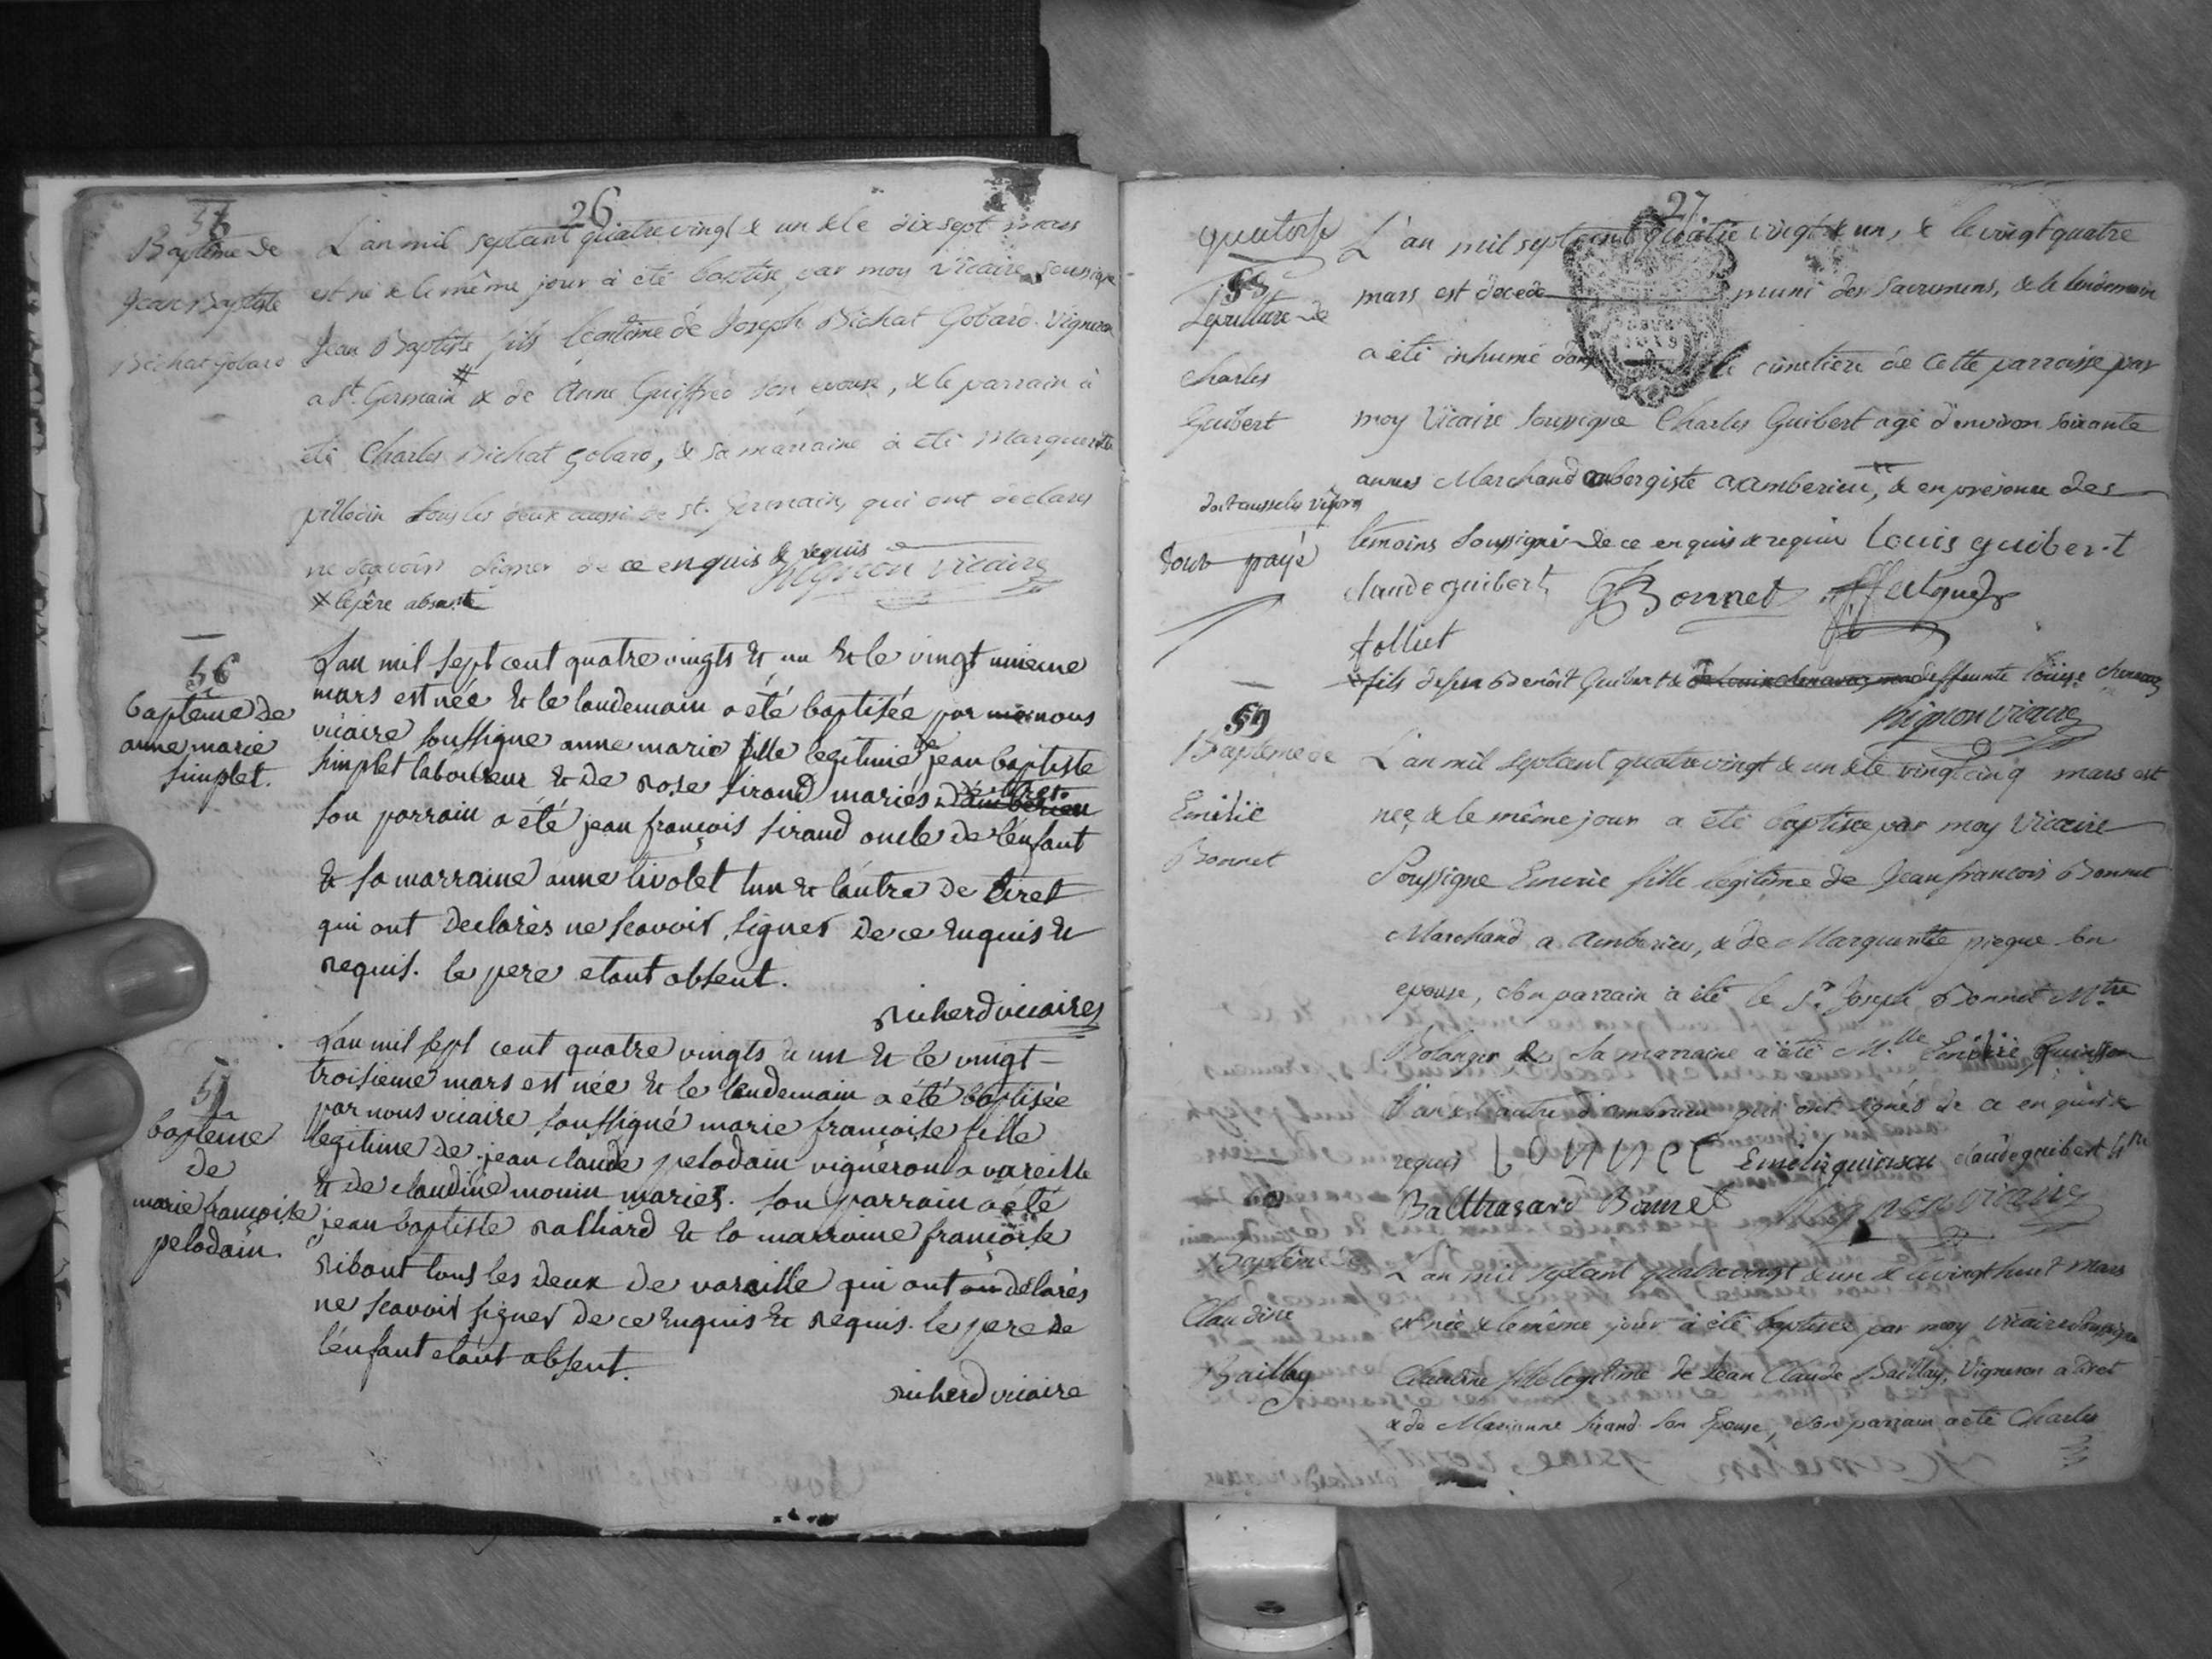 26
Baptême de
Jean Baptiste
Bichat Gobard
L'an mil septcent quatre vingt & un & le dix sept mars
est né & le même jour à été baptisé par moy Vicaire soussigné
Jean Baptiste fils légitime de Joseph Bichat Gobard Vigneron
a St. Germain # & de Anne Guiffred son épouse, & le parrain à
été Charles Bichat Gobard, & sa marraine à été Marguerite
pillodin tous les deux aussi de St. Germain, qui ont déclarés
ne sçavoir signer de ce enquis & requis
vicaire
# le père absent
56
baptême de
anne marie
simplet.
L'an mil sept cent quatre vingts & un & le vingt unieme
mars est née & le landemain a été baptisée par nous
vicaire soussigné anne marie fille legitime de jean baptiste
simplet laboureur & de rose sirand mariés de tiret. d'amberieu
son parrain a été jean françois sirand oncle de l'enfant
& sa marraine anne livolet l'un & l'autre de tiret
qui ont declarés ne scavoir signer de ce enquis &
requis. le pere etant absent.
richerd vicaire
57
baptême
de
marie françoise
pelodain.
L'an mil sept cent quatre vingts & un & le vingt
troisieme mars est née & le landemain a été baptisée
par nous vicaire soussigné marie françoise fille
legitime de jean claude pelodain vigneron a vareille
& de claudine monin mariés. son parrain a été
jean baptiste ralliard & la marraine françoise
ribout tous les deux de vareille qui ont délarés
ne scavoir signer de ce enquis & requis. le pere de
l'enfant etant absent.
richerd vicaire
27
quatorse
58
Sépulture de
Charles
Guibert
tout payé
L'an mil sept cent quatre vingt & un, & le vingt quatre
mars est décedé muni des Sacremens, & le lendemain
a été inhumé dans le cimetière de cette parroisse par
moy Vicaire soussigné Charles Guibert agé d'environ soixante
années Marchand aubergiste a amberieu, & en présence des
temoins soussignés de ce enquis & requis Louis guibert
claude guibert Bonnet
folliet
fils de feu Benoît Guibert & deffeunte Loüise
vicaire
59
Baptême de
Emélie
Bonnet
L'an mil septcent quatre vingt & un & le vingt cinq mars est
née & le même jour a été baptisée par moy Vicaire
Soussigné Emélie fille légitime de Jean françois Bonnet
Marchand a amberieu, & de Marguerite son
épouse, son parrain à été le Sr. Joseph Bonnet Mtre
Bolanger & sa marraine a été Mlle Emélie Quinson
l'un & l'autre d'amberieu qui ont signés de ce enquis &
requis bonnet Emelie quinson claude guibert
Balthazard Bonnet vicaire
Baptême de
Claudine
Baillay
L'an mil septcent quatre vingt & un & le vingt huit mars
est née & le même jour à été baptisée par moy vicaire soussigné
Claudine fille legitime de Jean Claude Baillay, Vigneron a tiret
& de Marianne Sirand son Epouse, son parrain a été Charles